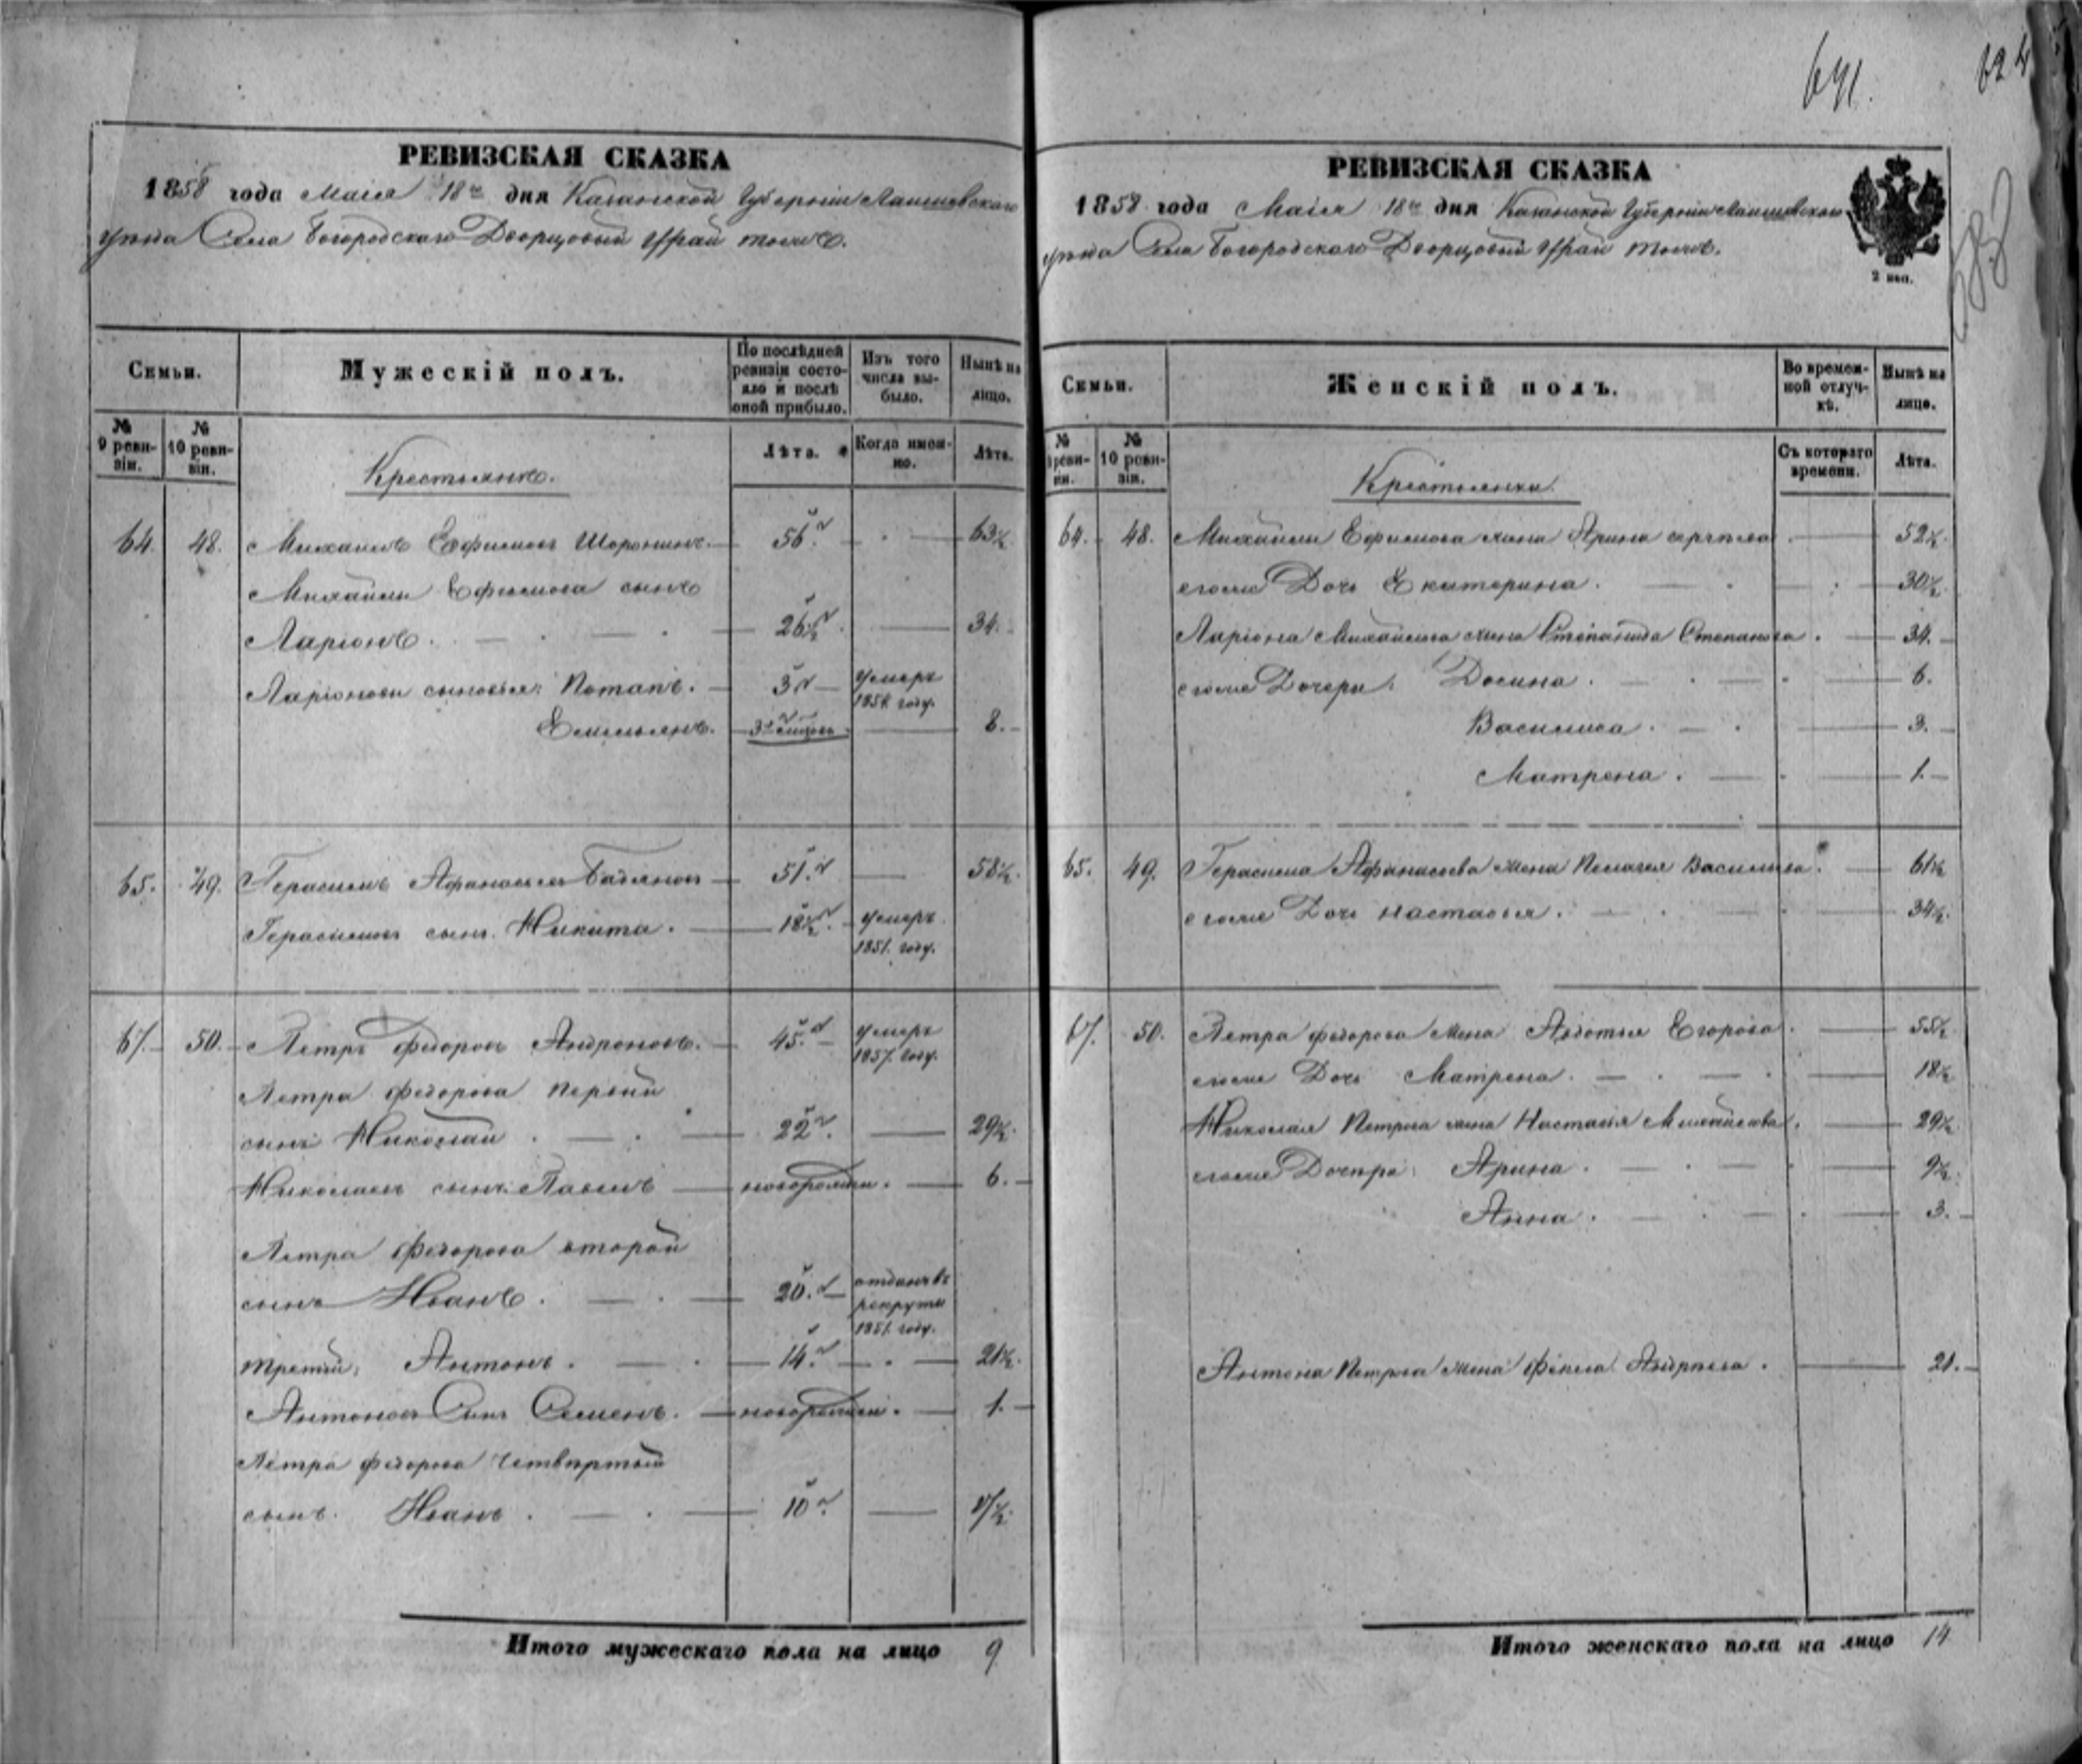 641.
624
РЕВИЗСКАЯ СКАЗКА
1858 года Маія 18го дня Казанской Губерніи Лаишевскаго
уезда Села Богородскаго Дворцовый Урай тожъ.
Семьи.
Мужескій полъ.
По послѣдней ревизіи состояло и послѣ оной прибыло.
Изъ того числа выбыло.
Нынѣ на лицо.
№ 9 ревизіи.
№ 10 ревизіи.
Лѣта.
Когда именно.
Лѣта.
Крестьянъ.
64. 48. Михаилъ Ефимовъ Шоронинъ. 56. 63½
Михайлы Ефимова сынъ
Ларіонъ. 26½. 34.
Ларіоновы сыновья: Потапъ. 3 умеръ
1854. году.
Емельянъ. 8.
65. 49. Герасимъ Афанасьевъ 51. 58½.
Герасимовъ сынъ Никита. 18½. умеръ
1851. году.
67. 50. Петръ Федоровъ Андроновъ. 45. умеръ
1857. году.
Петра Федорова первый
сынъ Николай. 22. 29½.
Николаевъ сынъ Павелъ новорожден. 6.
Петра Федорова второй
сынъ Иванъ. 20. отданъ въ
рекруты
1851. году.
третій: Антонъ. 14. 21½.
Антоновъ Сынъ Семенъ. новорожден. 1.
Петра Федорова четвертый
сынъ. Иванъ. 10. 17½.
Итого мужескаго пола на лицо 9
РЕВИЗСКАЯ СКАЗКА
1858 года Маія 18го дня Казанской Губерніи Лаишевскаго
уезда Села Богородскаго Дворцовый Урай тожъ.
2 коп.
Семьи.
Женскій полъ.
Во временной отлучкѣ.
Нынѣ на лицо.
№ 9 ревизіи.
№ 10 ревизіи.
Съ котораго времени.
Лѣта.
Крестьянки.
64. 48. Михайлы Ефимова жена Арина Сергѣева 52½.
егоже Дочь Екатерина. 30½.
Ларіона Михайлова жена Степанида Степанова. 34.
егоже Дочери: 6.
Василиса. 3.
Матрена. 1.
65. 49. Герасима Афанасьева жена Пелагея Васильева. 61½
егоже Дочь Настасья. 34½.
67. 50. Петра Федорова жена Авдотья Егорова. 55½.
егоже Дочь Матрена. 18½
Николая Петрова жена Настасья Михайлова. 29½.
егоже Дочери: Арина. 9½.
Анна. 3.
Антона Петрова жена Фекла Андреева. 21.
Итого женскаго пола на лицо 14